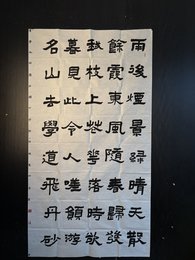 雨後煙景綠晴天散
餘霞東風隨春歸發
我枝上花花落時欲
暮見此令人嗟願遊
名山去學道飛丹砂